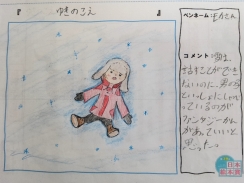 『 ゆきのこえ 』
ペンネーム：
コメント：雪は
話すことができ
ないのに、男の子
といっしょにしゃべ
っているのが
ファンタジーかん
があっていいと
思った。
日本
絵本賞